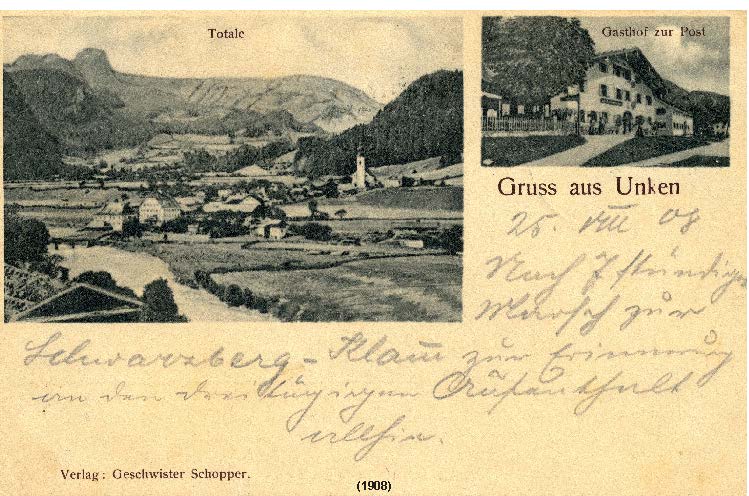 Totale
Gasthof zur Post
Gruss aus Unken
25. VIII 08
Nach 7 stündige
Marsch zur
Schwarzberg-Klam̅ zur Erinnerung
an den dreitägigen Aufenthalt
allhier.
Verlag: Geschwister Schopper.
(1908)